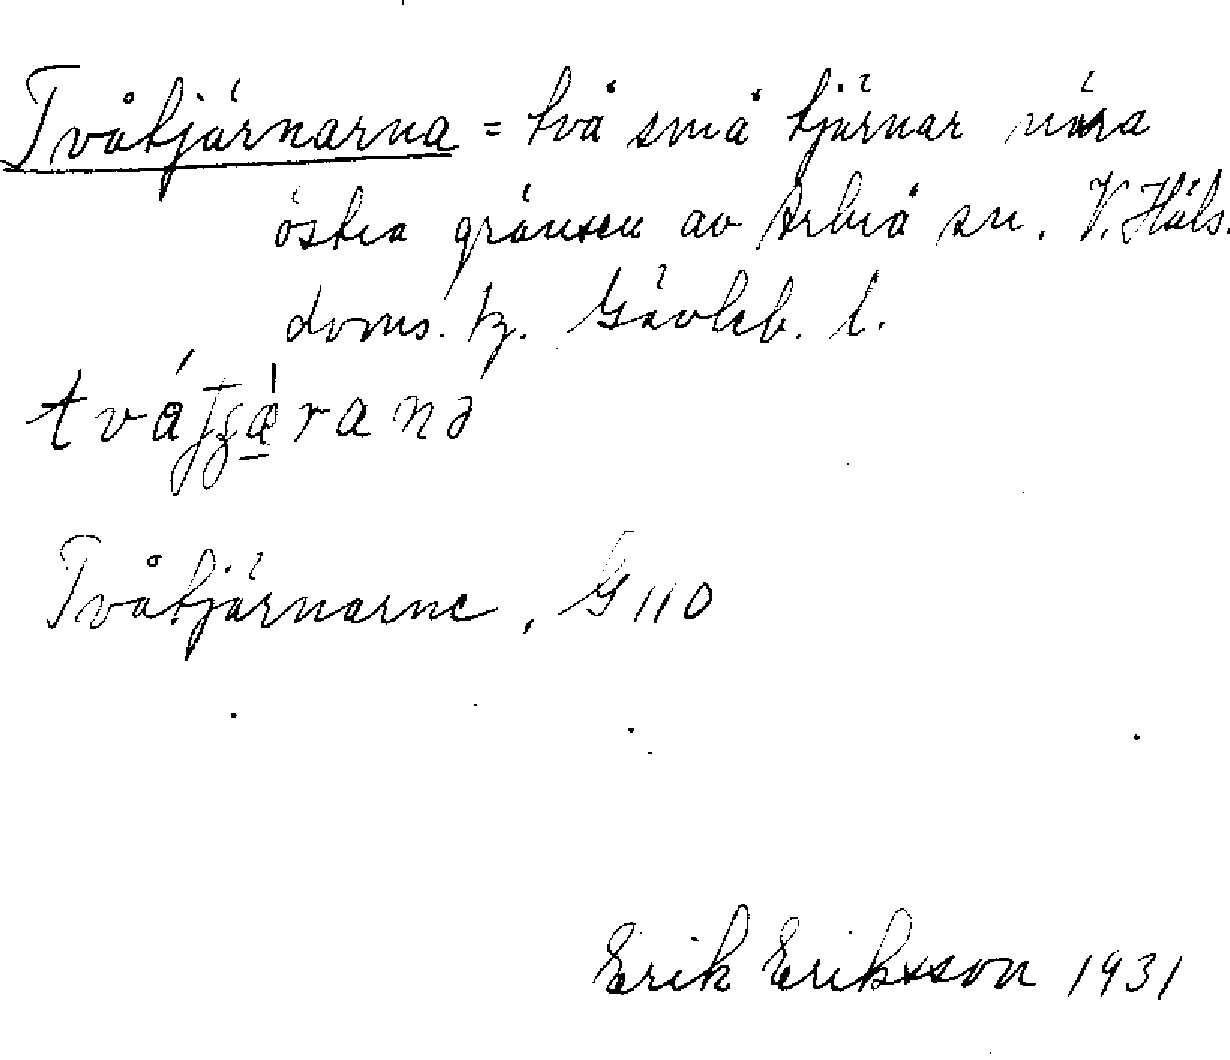 Tvåtjärnarna = två små tjärnar nära
östra gränsen av Arbrå sn. V. Häls.
doms. tg. Gävleb. l.
Tvåtjärnarne, G 110
Erik Eriksson 1931